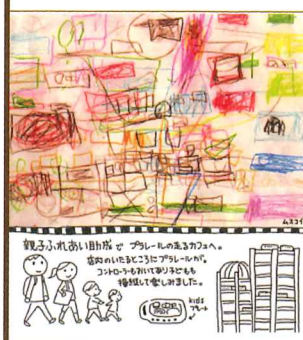 ムスコ
親子ふれあい助成で プラレールの走るカフェへ。
店内のいたるところにプラレールが。
コントローラーもおいてあり子どもも
操縦して楽しみました。
kids
プレート